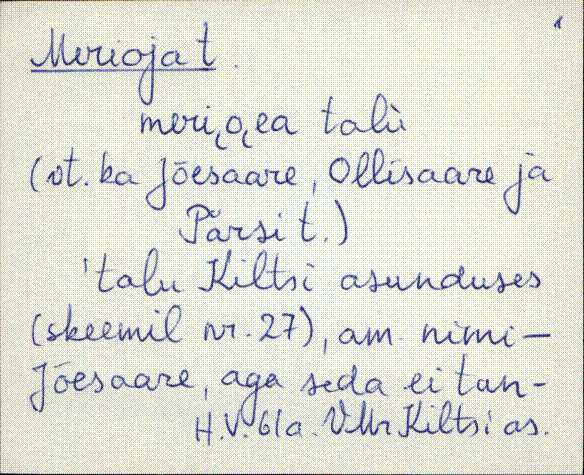 1
Merioja t.
meri₍o₍ea talù
(vt. ka Jõesaare, Ollisaare ja
Pärsi t.)
'talu Kiltsi asunduses
(skeemil nr. 27), am. nimi –
Jõesaare, aga seda ei tun-
H.V. 61a. VMr Kiltsi as.